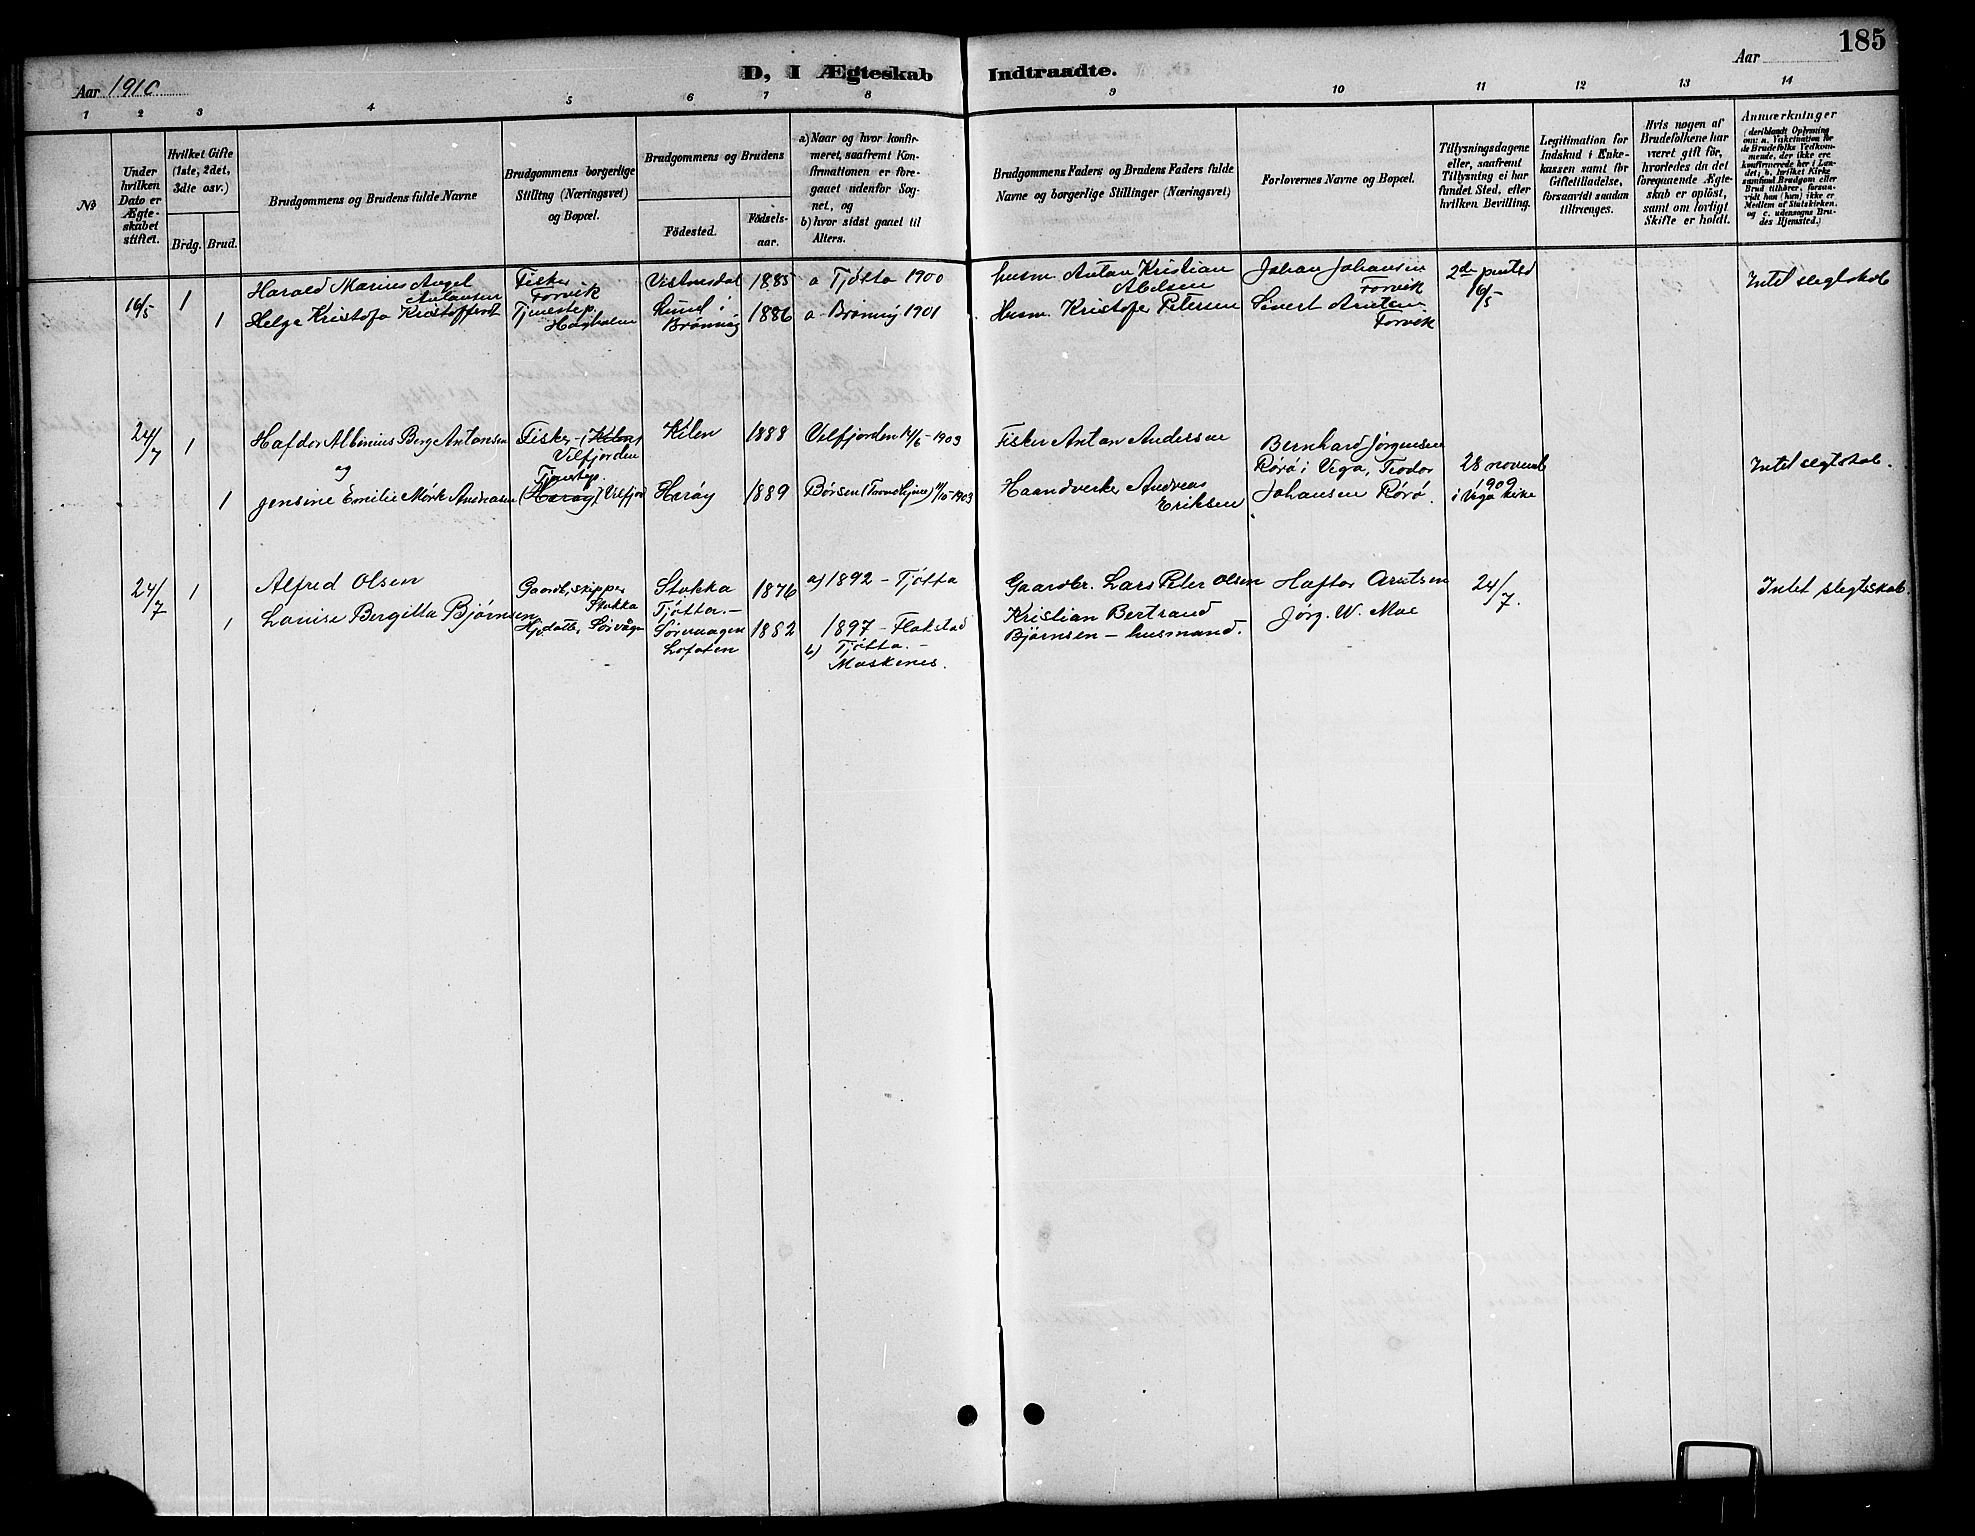 185
D, I Ægteskab Indtraadte.
Aar 1910 Aar
1 2 3 4 5 6 7 8 9 10 11 12 13 14
No
Under
hvilken
Dato er
Ægte-
skabet
stiftet.
Hvilket Gifte
(1ste, 2det,
3die osv.)
Brdg. Brud.
Brudgommens og Brudens fulde Navne
Brudgommens borgerlige
Stilling (Næringsvei)
og Bopæl.
Brudgommens og Brudens
Födested.
Födsels-
aar.
a) Naar og hvor konfir-
meret, saafremt Kon-
firmationen er fore-
gaaet udenfor Sog-
net, og
b) hvor sidst gaaet til
Alters.
Brudgommens Faders og Brudens Faders fulde
Navne og borgerlige Stillinger (Næringsvei)
Forlovernes Navne og Bopæl.
Tillysningsdagene
eller, saafremt
Tillysning ei har
fundet Sted, efter
hvilken Bevilling.
Legitimation for
Indskud i Enke-
kassen samt för
Giftetilladelse,
forsaavidt saadan
tiltrænges.
Hvis nogen af
Brudefolkene har
været gift för,
hvorledes da det
foregaaende Ægte-
skab er oplöst,
samt om lovligt
Skifte er holdt.
Anmærkninger
(deriblandt Oplysning
om: a. Vakcination for
de Brudefolks Vedkom-
mende, der ikke ere
konfirmerede her i Lan-
det; b. hvilket Kirke-
samfund Brudgom eller
Brud tilhörer, forsaa-
vidt han (hun) ikke er
Medlem af Statskirken,
og c. udensogns Bru-
des Hjemsted.)
16/5 1 Harald Marius Angel
Antonsen
Fisker
Forvik
Vistnesdal 1885 a Tjøtta 1900
husm. Anton Kristian
Abelsen
Johan Johansen
Forvik
2den pintsd
16/5
Intet slegtskab
1 Helga Kristofa Kristoffersd
Tjenestep
Høgholm
Lund i
Brønnøy
1886 a Brønnøy 1901
Husm. Kristofer Petersen
Sivert Arntsen
Forvik
24/7 1 Hafdor Albinius Berg Antonsen
Fisker - (Kilen)
Velfjorden
Kilen 1888 Velfjorden 14/6 - 1903
Fisker Anton Andersen
Bernhard Jørgensen
Rørø i Vega, Teodor
Johansen Rørø.
28 novemb
1909
i Vega kirke
Intet slegtskab.
og
1 Jensine Emilie Mørk Andreasen
Tjenestep
(Herøy) Velfjor
Herøy 1889 Børsen (Trondhjem) 11/10 - 1903
Haandverker Andreas
Eriksen
24/7 1 Alfred Olsen
Gaardb, skipper
Stokka
Stokka
Tjøtta. -
1876 a) 1892 - Tjøtta
Gaardbr. Lars Peter Olsen
Haftor Arntsen
24/7.
Intet slegtsskab.
1 Louise Bergitta Bjørnsen
Hjdatt, Sørvågn
Sørvaagen
Lofoten
1882 1897 - Flakstad
b) Tjøtta. -
Moskenes.
Kristian Bertrand
Bjørnsen - husmand.
Jørg. W. Moe